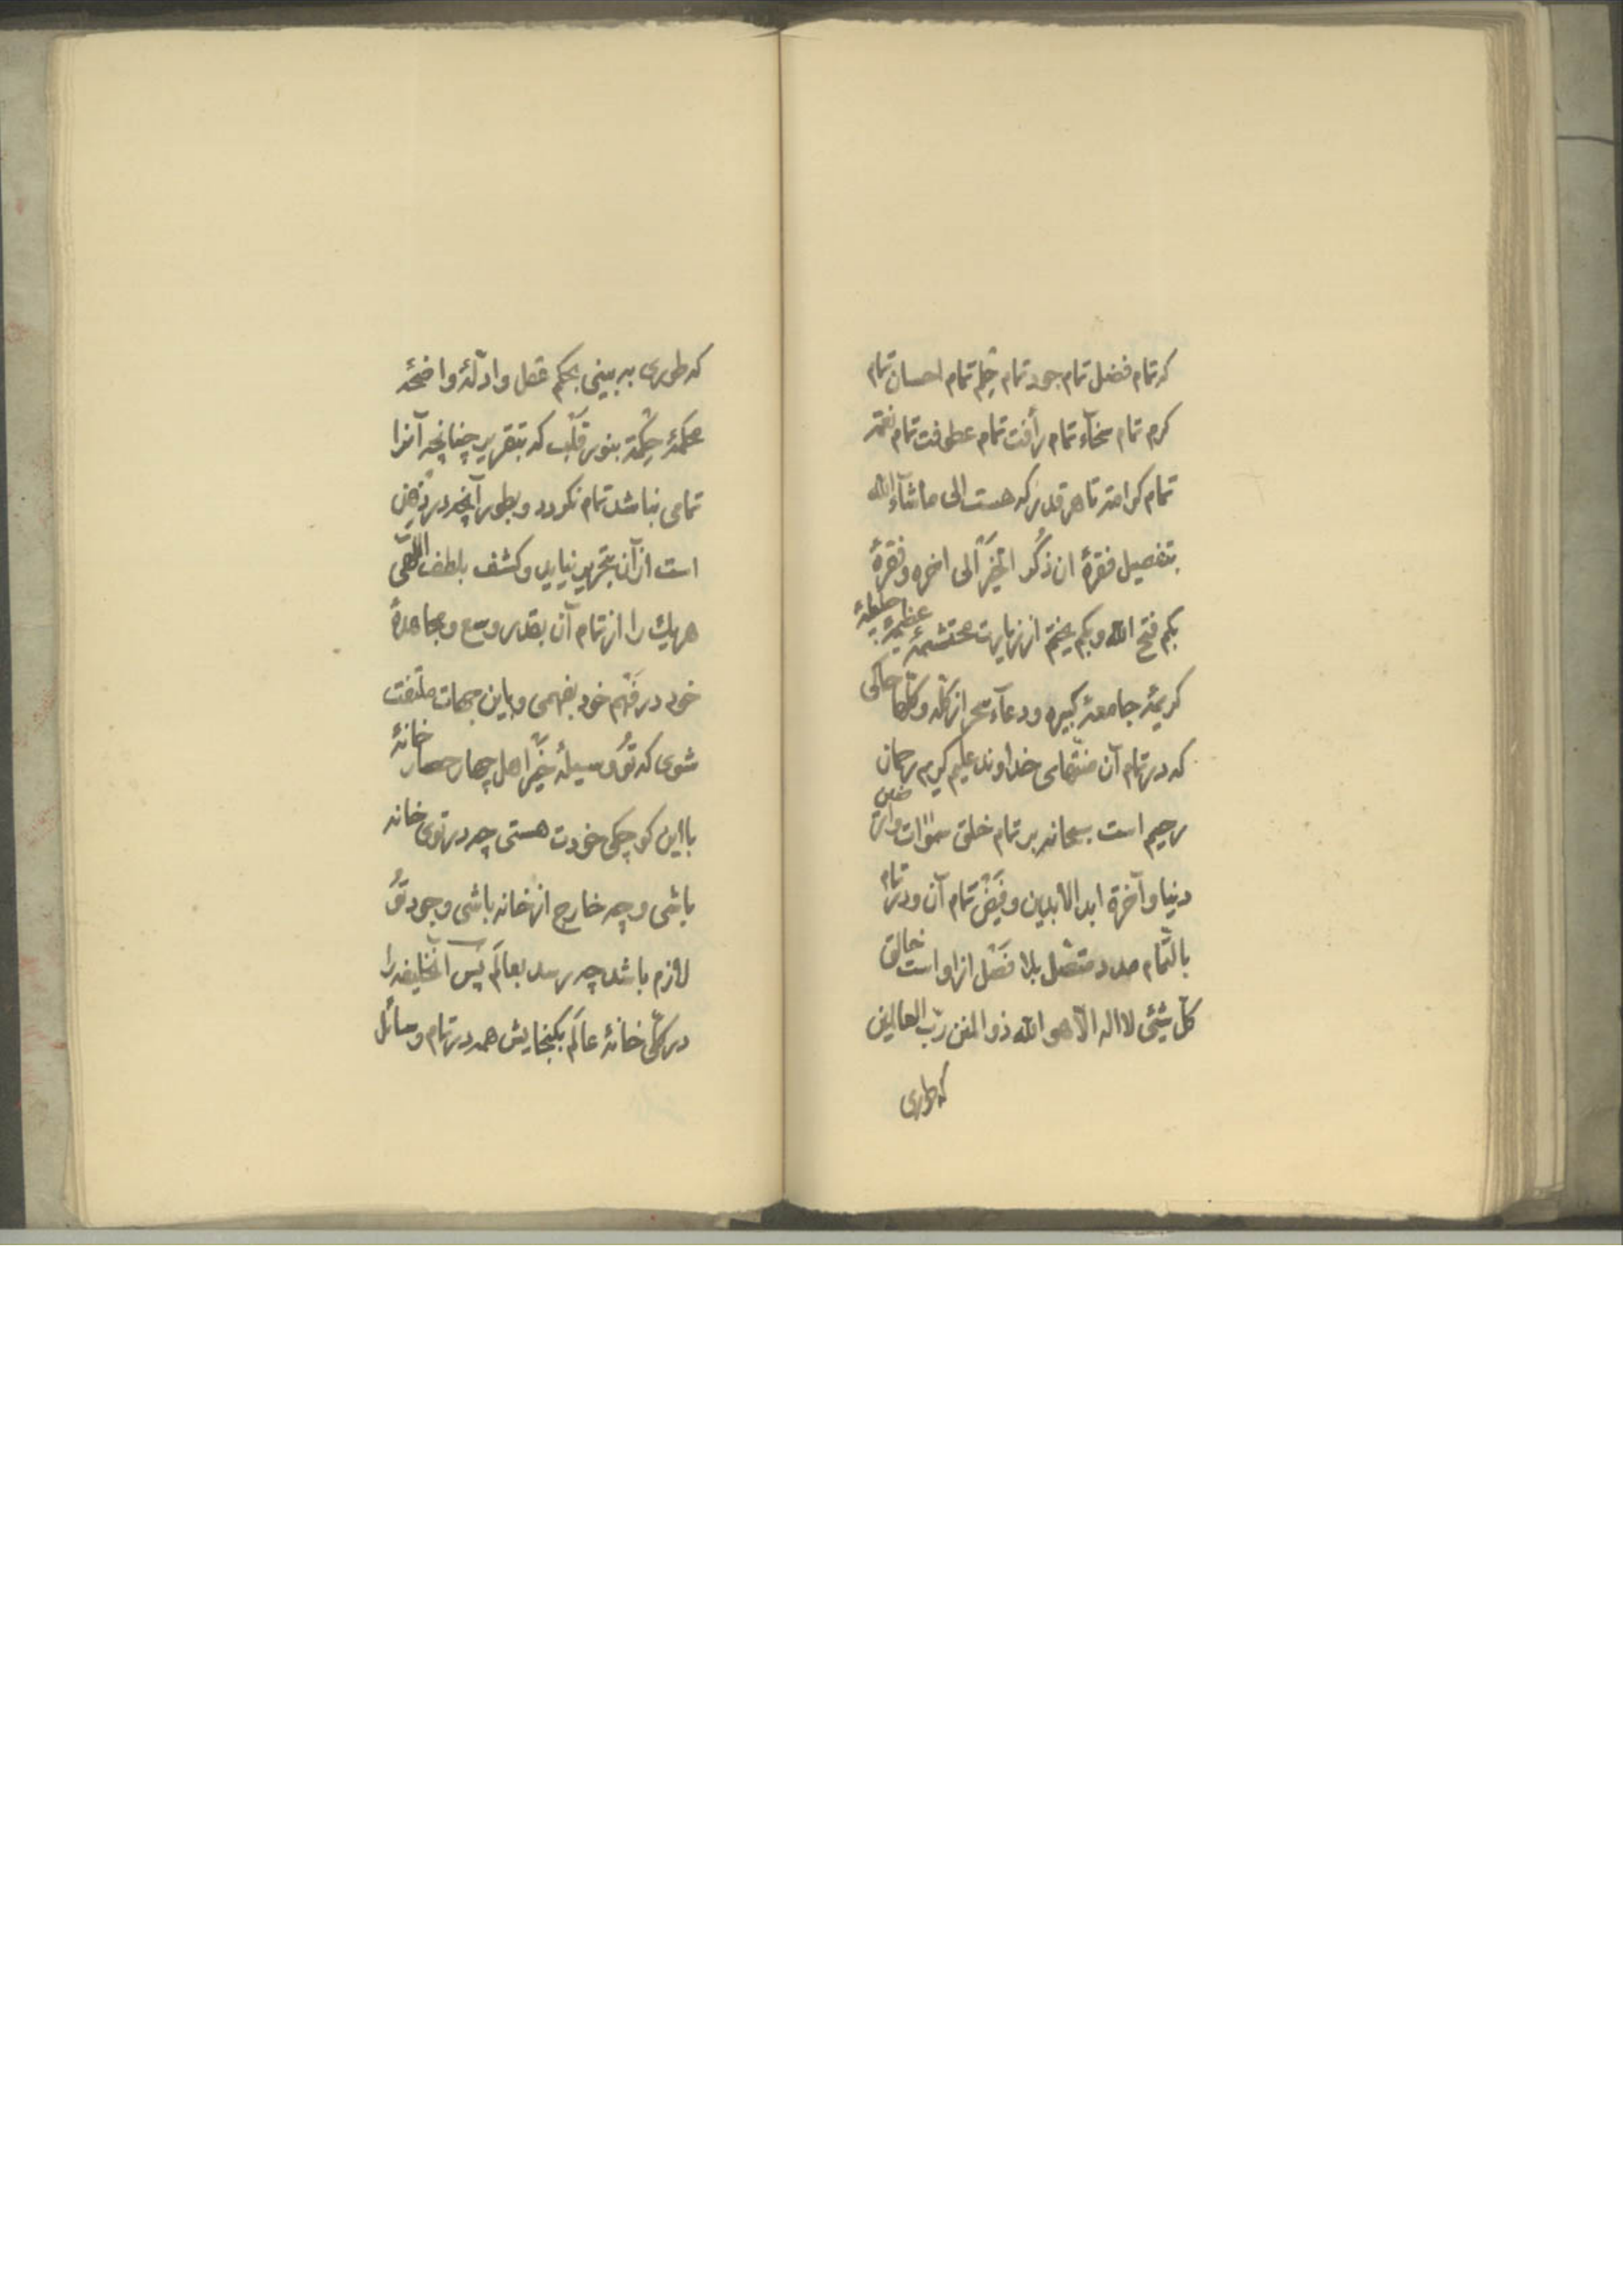 که تمام فضل تمام جود تمام حِلْم تمام احسان تمام
کرم تمام سخآء تمام رأفت تمام عطوفت تمام نعمة
تمام کرامته تا هر قدر که هست الی ماشآء الله
بتفصیل فقرۀ ان ذُکر الخَیْر الی اخره و فقرۀ
بکم فتح الله و بکم یختم از زیارت محتشمۀ عظیمۀ جلیلۀ
کریمۀ جامعۀ کبیره و دعآء سحر از کلّه و کلّها حاکی
که در تمام آن منتهای خداوند علیم کریم رحمان
رحیم است سبحانه بر تمام خلق سموات و ارضین
دنیا و آخرة ابد الابدین و فَیْض تمام آن و در تمام
بالتّمام مدد متّصل بلا فَصْل از او است خالق
کلّ شیئی لا اله الّا هو الله ذو المنن ربّ العالمین
که طوری
که طوری به بینی بحکم عقل و ادلّۀ واضحۀ
محکمۀ حِکْمة بنور قَلْب که بتقریر چنانچه آنرا
تمامی نباشد تمام نکردد و بطور آنچه در ذِهْن
است از آن بتحریر نیاید و کشف بلطف اللّهی
هریک را از تمام آن بقدر وسع و مجاهدۀ
خود در فَهْم خود بفهمی و باین جهات ملتفت
شوی که تُو وسیلۀ خَیْر اهل چهار حصار خانۀ
با این کوچکی خودت هستی چه در توی خانه
باشی و چه خارج از خانه باشی وجود تُو
لازم باشد چه رسد بعالَم پَس آنخلیفه را
در کلّ خانۀ عالَم بکنجایش همه در تمام وسائل